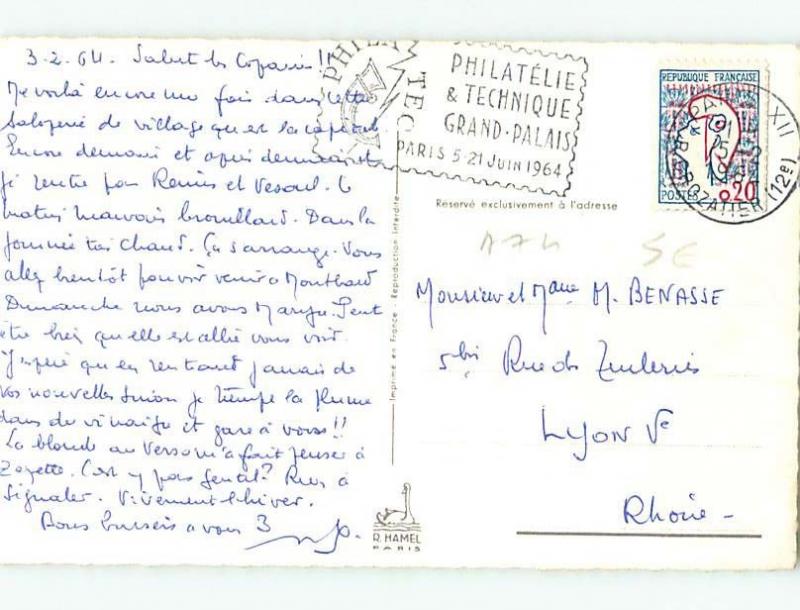 3-2.64. Salut les Copains!!
Me voilà encore une fois dans cette
saloperie de village qu'est la capitale.
Encore demain et après demain et
je rentre par Reims et Vesoul. Le
matin mauvais brouillard. Dans la
journée très chaud. Ça s'arrange. Vous
allez bientôt pouvoir venir à Montbard
Dimanche nous avons Peut
être bien qu'elle est allée vous voir.
J'espère qu'en rentrant j'aurais de
vos nouvelles sinon je trempe la plume
dans du vinaigre et gare à vous!!
La blonde au verso m'a fait penser à
Zezette. C'est y pas gentil? Rien à
signaler. Vivement l'hiver.
Bons baisers à vous 3
PHILATEC
PHILATÉLIE
& TECHNIQUE
GRAND-PALAIS
PARIS 5-21 JUIN 1964
REPUBLIQUE FRANÇAISE
POSTES 0.20
PARIS XII
R. CROZATIER (12e)
Réservé exclusivement à l'adresse
A74 5E
Monsieur et Mme M. BENASSE
5bis Rue des Tuileries
LYON Ve
Rhône -
Imprimé en France - Reproduction interdite
R. HAMEL
PARIS